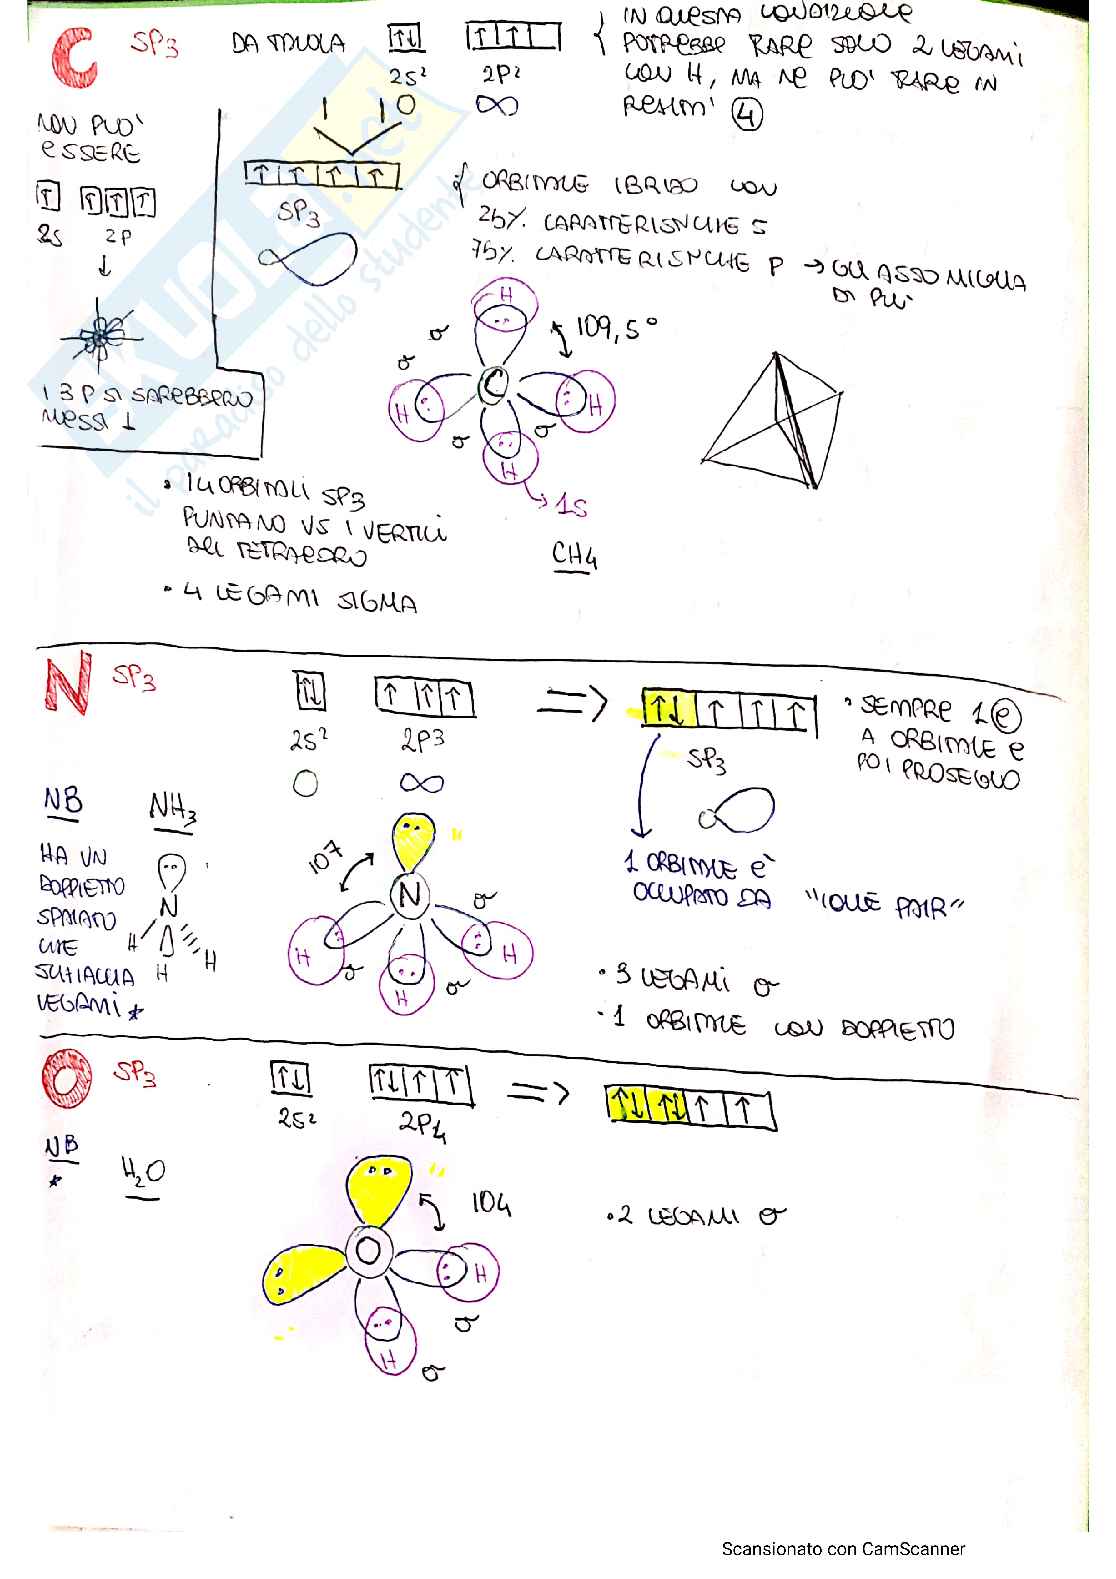 C SP3 DA TAVOLA 2S² 2P²
IN QUESTA CONDIZIONE
POTREBBE FARE SOLO 2 LEGAMI
CON H, MA NE PUO' FARE IN
REALTA' 4
NON PUO'
ESSERE
2S 2P
I 3 P SI SAREBBERO
MESSI ⊥
SP3
ORBITALE IBRIDO CON
25% CARATTERISTICHE S
75% CARATTERISTICHE P → GLI ASSOMIGLIA
DI PIU'
H
σ σ 109,5°
H C H
σ σ
H
→ 1S
CH4
• I 4 ORBITALI SP3
PUNTANO VS I VERTICI
DEL TETRAEDRO
• 4 LEGAMI SIGMA
N SP3
2S² 2P3
=> SP3
• SEMPRE 1 e
A ORBITALE E
POI PROSEGUO
NB NH3
HA UN
DOPPIETTO
SPAIATO
CHE
SCHIACCIA
LEGAMI *
N
H H H
107
N σ
H H
σ H σ
1 ORBITALE E'
OCCUPATO DA "LONE PAIR"
• 3 LEGAMI σ
• 1 ORBITALE CON DOPPIETTO
O SP3
2S² 2P4
=>
NB
* H2O
104
O H
H σ
σ
• 2 LEGAMI σ
SKUOLA.net
il paradiso dello studente
Scansionato con CamScanner